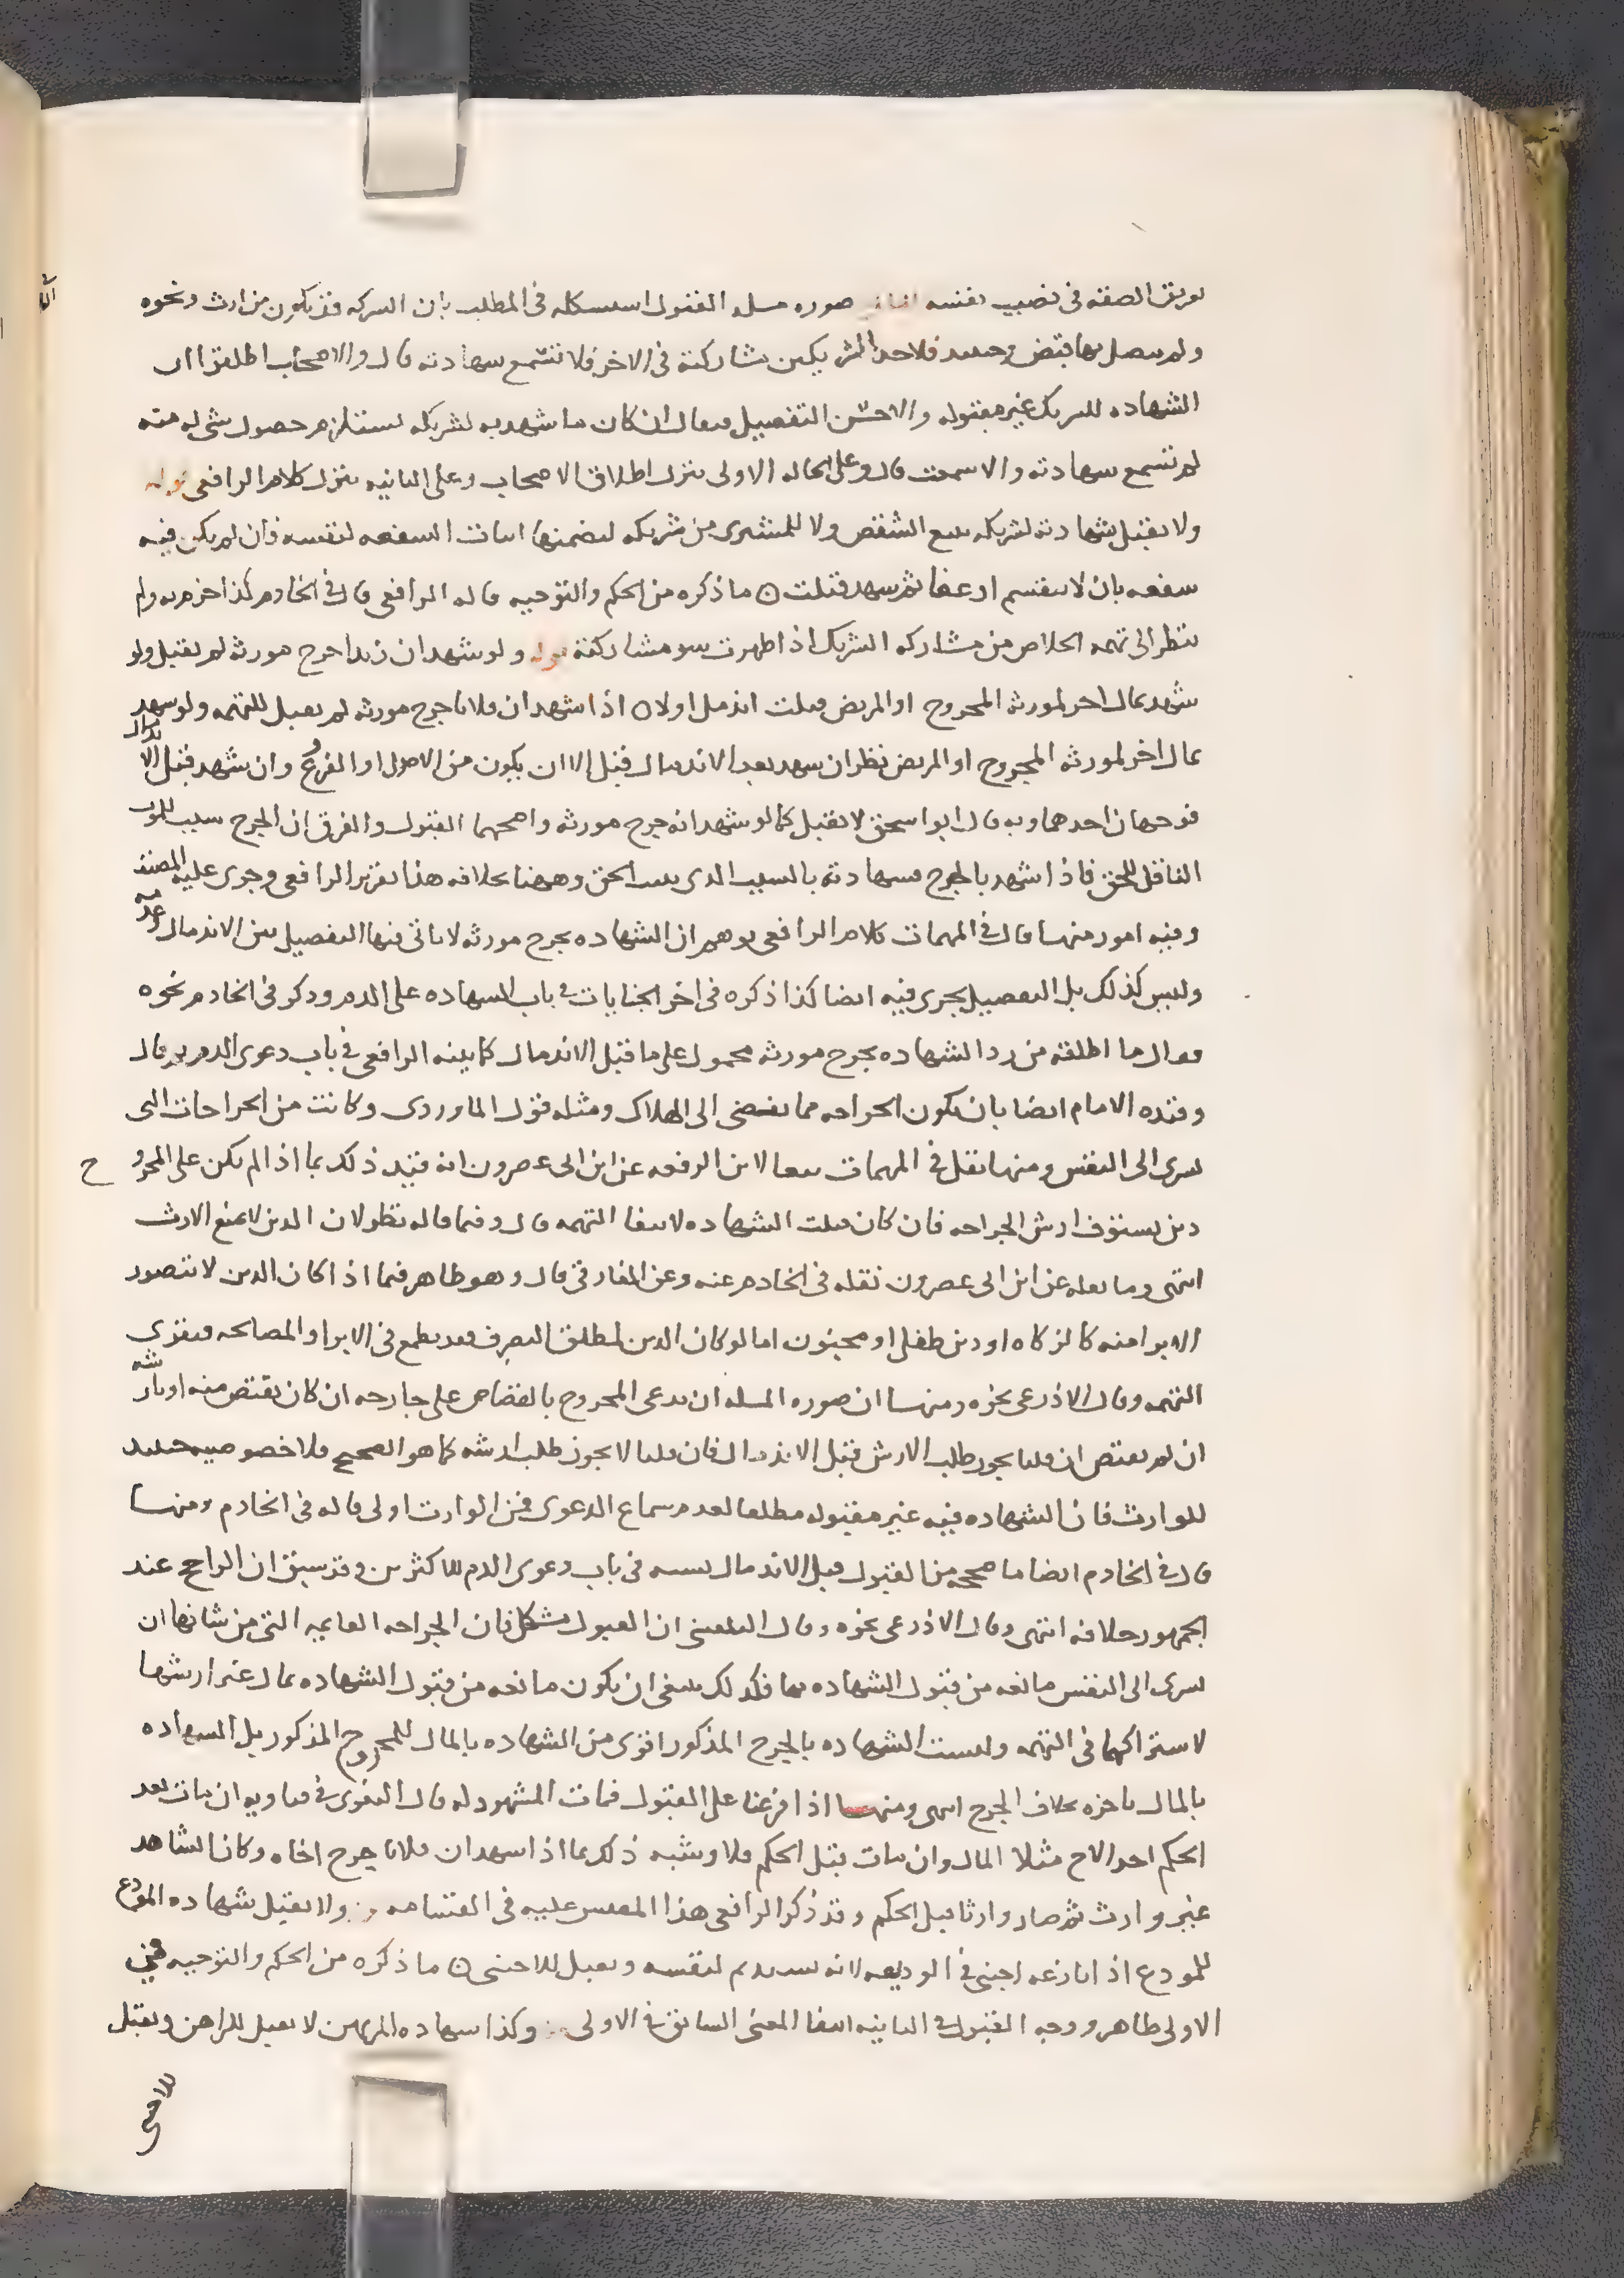 تفريق الصفقة في نصيب نفسه صورة مسله القبول استشكله في المطلب بان الشركه قد تكون من ارث ونحوه
ولم يتصل بها قبض وحينئذ فلاحد الشريكين مشاركته في الاخر فلا تسمع شهادته قال والاصحاب اطلقوا ان
الشهاده للشريك غير مقبوله والاحسن التفصيل فيقال ان كان ما شهد به لشريكه يستلزم حصول شي له منه
لم تسمع شهادته والا سمعت قال وعلى الحاله الاولى ينزل اطلاق الاصحاب وعلى الثانيه ينزل كلام الرافعي قوله
ولا يقبل شهادته لشريكه ببيع الشقص ولا للمشتري من شريكه لتضمنها اثبات الشفعه لنفسه فان لم يكن فيه
شفعه بان لا ينقسم او عفا ثم شهد قبلت ما ذكره من الحكم والتوجيه قاله الرافعي قال في الخادم كذا جزم به ولم
ينظر الى تهمه الخلاص من مشاركه الشريك اذا ظهرت سو مشاركته قوله ولو شهد ان زيدا جرح مورثه لم يقبل ولو
شهد بمال اخر لمورثه المجروح او المريض قبلت اندمل اولا اذا شهد ان فلانا جرح مورثه لم يقبل للتهمه ولو شهد
بمال اخر لمورثه المجروح او المريض نظر ان شهد بعد الاندمال قبل الا ان يكون من الاصول او الفروع وان شهد قبل الاندمال
فوجهان احدهما وبه قال ابو اسحق لا تقبل كما لو شهد انه جرح مورثه واصحهما القبول والفرق ان الجرح سبب للموت
الناقل للحق فاذا شهد بالجرح فشهادته بالسبب الذي يثبت الحق وههنا بخلافه هذا تقرير الرافعي وجرى عليه المصنف
وفيه امور منها قال في المهمات كلام الرافعي يوهم ان الشهاده بجرح مورثه لا ياتي فيها التفصيل بين الاندمال وعدمه
وليس كذلك بل التفصيل يجري فيه ايضا كذا ذكره في اخر الجنايات في باب الشهاده على الدم وذكر في الخادم نحوه
فقال ما اطلقه من رد الشهاده بجرح مورثه محمول على ما قبل الاندمال كما بينه الرافعي في باب دعوى الدم ثم قال
وقيده الامام ايضا بان تكون الجراحه مما يفضي الى الهلاك ومثله قول الماوردي وكانت من الجراحات التي
تسري الى النفس ومنها نقل في المهمات تبعا لابن الرفعه عن ابن ابي عصرون انه قيد ذلك بما اذا لم يكن على المجروح
دين يستغرق ارش الجراحه فان كان قبلت الشهاده لانتفا التهمه قال وفيما قاله نظر لان الدين لا يمنع الارث
انتهى وما نقله عن ابن ابي عصرون نقله في الخادم عنه وعن الفارقي قال وهو ظاهر فيما اذا كان الدين لا يتصور
الابرا منه كالزكاه او دين طفل او مجنون اما لو كان الدين لمطلق التصرف فقد يطمع في الابرا او المصالحه فيقوى
التهمه وقال الاذرعي نحوه ومنها ان صوره المسله ان يدعي المجروح بالقصاص على جارحه ان كان يقتص منه او بارشه
ان لم يقتص ان قلنا يجوز طلب الارش قبل الاندمال فان قلنا لا يجوز طلب ارشه كما هو الصحيح فلا خصوصيه حينئذ
للوارث فان الشهاده فيه غير مقبوله مطلقا لعدم سماع الدعوى فمن الوارث اولى قاله في الخادم ومنها
قال في الخادم ايضا ما صححه من القبول قبل الاندمال نسبه في باب دعوى الدم للاكثرين وقد سبق ان الراجح عند
الجمهور خلافه انتهى وقال الاذرعي نحوه وقال البلقيني ان القبول مشكل فان الجراحه القايمه التي من شانها ان
تسري الى النفس مانعه من قبول الشهاده بها فكذلك ينبغي ان تكون مانعه من قبول الشهاده بمال غير ارشها
لاشتراكهما في التهمه وليست الشهاده بالجرح المذكور اقوى من الشهاده بالمال للمجروح المذكور بل الشهاده
بالمال ناجزه بخلاف الجرح انتهى ومنها اذا فرعنا على القبول فمات المشهود له قال البغوي في فتاويه ان مات بعد
الحكم اخذ الاخ مثلا المال وان مات قبل الحكم فلا وشبه ذلك بما اذا شهد ان فلانا جرح اخاه وكان الشاهد
غير وارث ثم صار وارثا قبل الحكم وقد ذكر الرافعي هذا المقيس عليه في القسامه ولا تقبل شهاده المودع
للمودع اذا نازعه اجنبي في الوديعه لانه يستديم لنفسه وتقبل للاجنبي ما ذكره من الحكم والتوجيه في
الاولى ظاهر ووجه القبول في الثانيه انتفا المعنى السابق في الاولى وكذا شهاده المرتهن لا تقبل للراهن وتقبل
للاجنبي